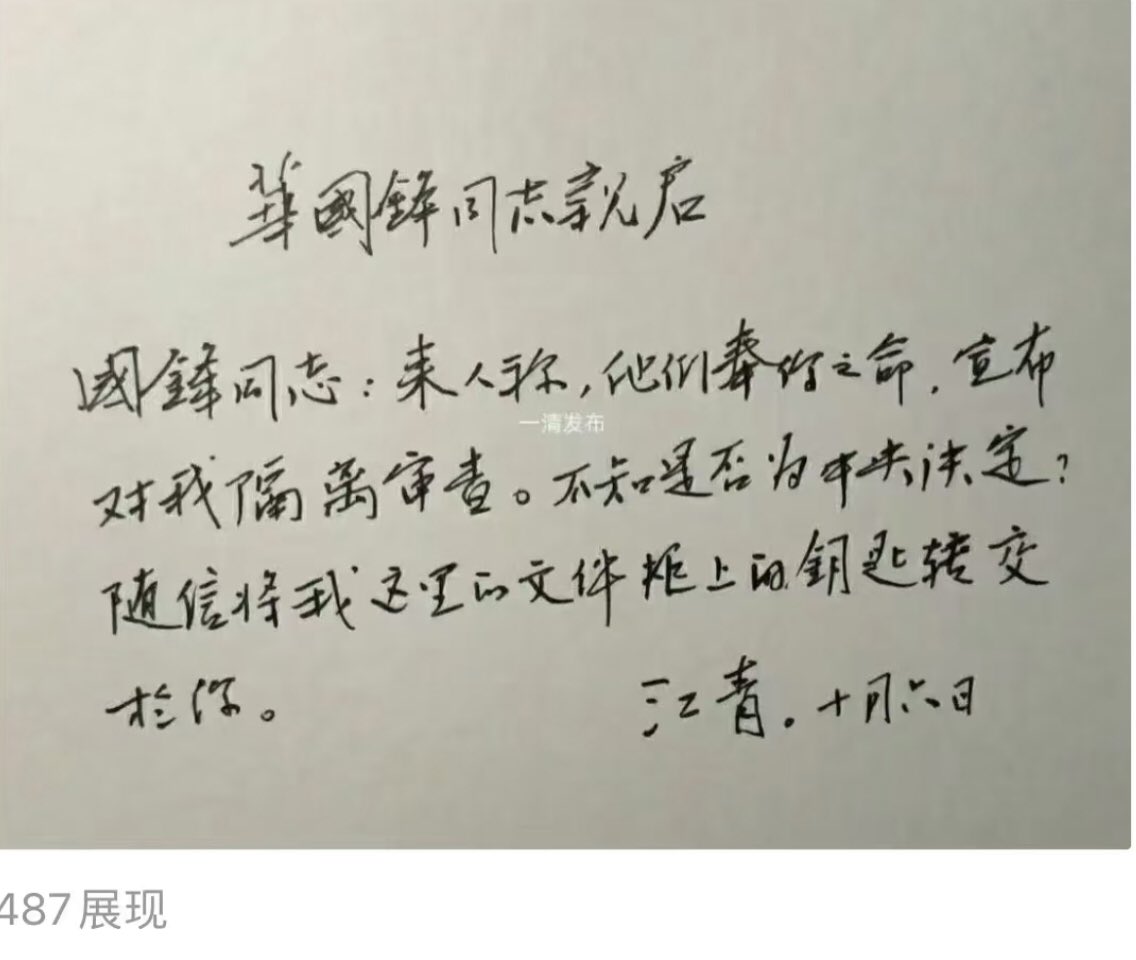 華國鋒同志親启
國鋒同志：来人称，他们奉你之命，宣布
一清发布
对我隔离审查。不知是否为中央决定？
随信将我这里的文件柜上的钥匙转交
於你。
江青。十月六日
487展现